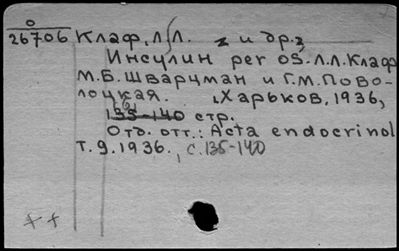 О
26706 Клаф, Л.Л. и др.
Инсулин per os. Л.Л. Клаф
М.Б. Шварцман и Г.М. Пово-
лоцкая. Харьков, 1936,
135-140 стр.
Отд. отт.: Acta endocrinol
т. 9. 1936., с. 135-140
++